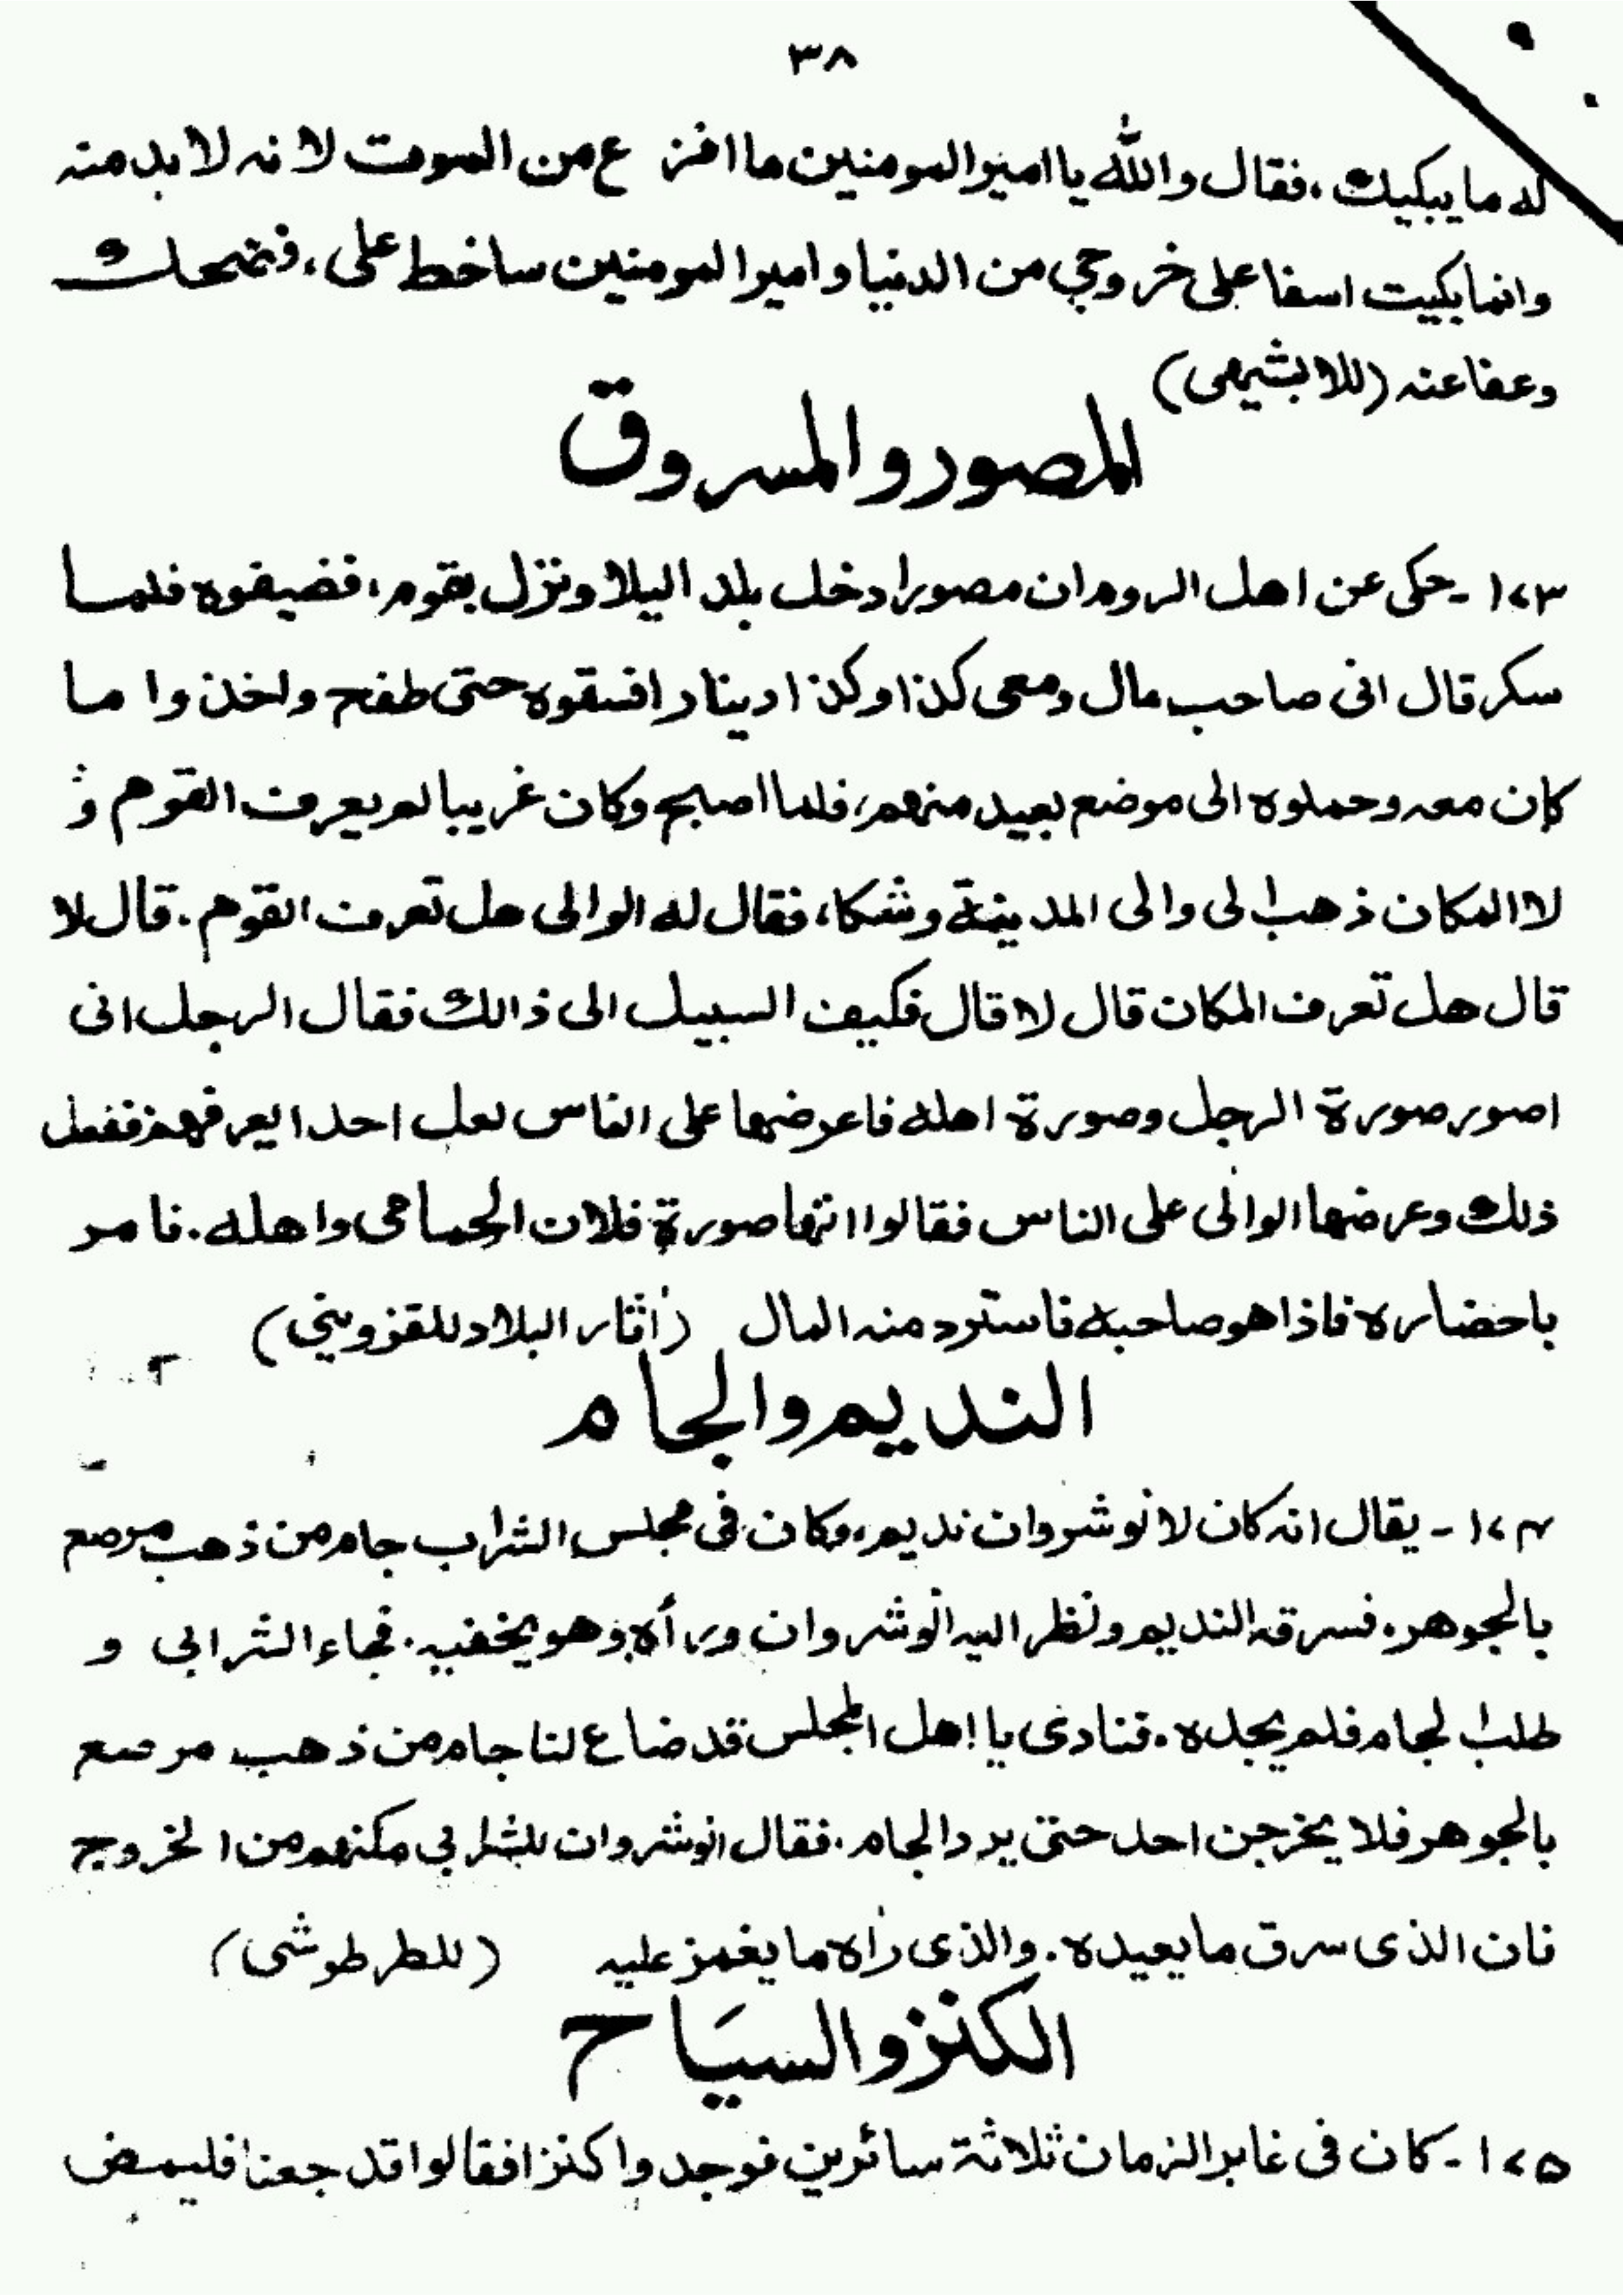 ٣٨
له ما يبكيك، فقال والله يا امير المومنين ما افزع من الموت لانه لا بد منه
وانما بكيت اسفا على خروجي من الدنيا وامير المومنين ساخط على، فضحك
وعفا عنه (للابشيهى)
المصور والمسروق
١٧٣ - حكى عن اهل الروم ان مصورا دخل بلد اليلا ونزل بقوم، فضيفوه فلما
سكر قال انى صاحب مال ومعى كذا وكذا دينارا فسقوه حتى طفح واخذوا ما
كان معه وحملوه الى موضع بعيد منهم، فلما اصبح وكان غريبا لم يعرف القوم و
لا المكان ذهب الى والى المدينة وشكا، فقال له الوالى هل تعرف القوم. قال لا
قال هل تعرف المكان قال لا قال فكيف السبيل الى ذالك فقال الرجل انى
اصور صورة الرجل وصورة اهله فاعرضها على الناس لعل احدا يعرفهم ففعل
ذلك وعرضها الوالى على الناس فقالوا انها صورة فلان الحمامى واهله. فامر
باحضاره فاذا هو صاحبه فاسترد منه المال (اثار البلاد للقزويني)
النديم والجام
١٧٤ - يقال انه كان لانوشروان نديم، وكان فى مجلس الشراب جام من ذهب مرصع
بالجوهر. فسرقه النديم ونظر اليه انوشروان وراٰه وهو يخفيه. فجاء الشرابي و
طلب الجام فلم يجده. فنادى يا اهل المجلس قد ضاع لنا جام من ذهب مرصع
بالجوهر فلا يخرجن احد حتى يرد الجام. فقال انوشروان للشرابي مكنهم من الخروج
فان الذى سرق ما يعيده. والذى راٰه ما يغمز عليه (للطرطوشى)
الكنز والسيَاح
١٧٥ - كان فى غابر الزمان ثلاثة سائرين فوجدوا كنزا فقالوا قد جعنا فليمض